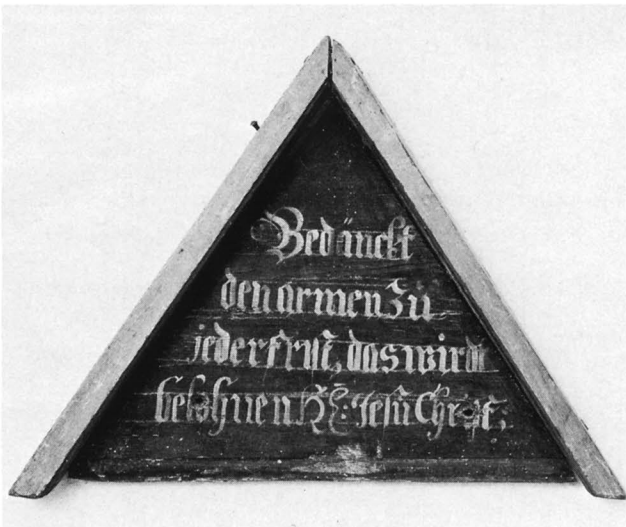 Bedünckt
den armen Zü
jeder frist, das wirdt
belohnen H: Jesü Christ;